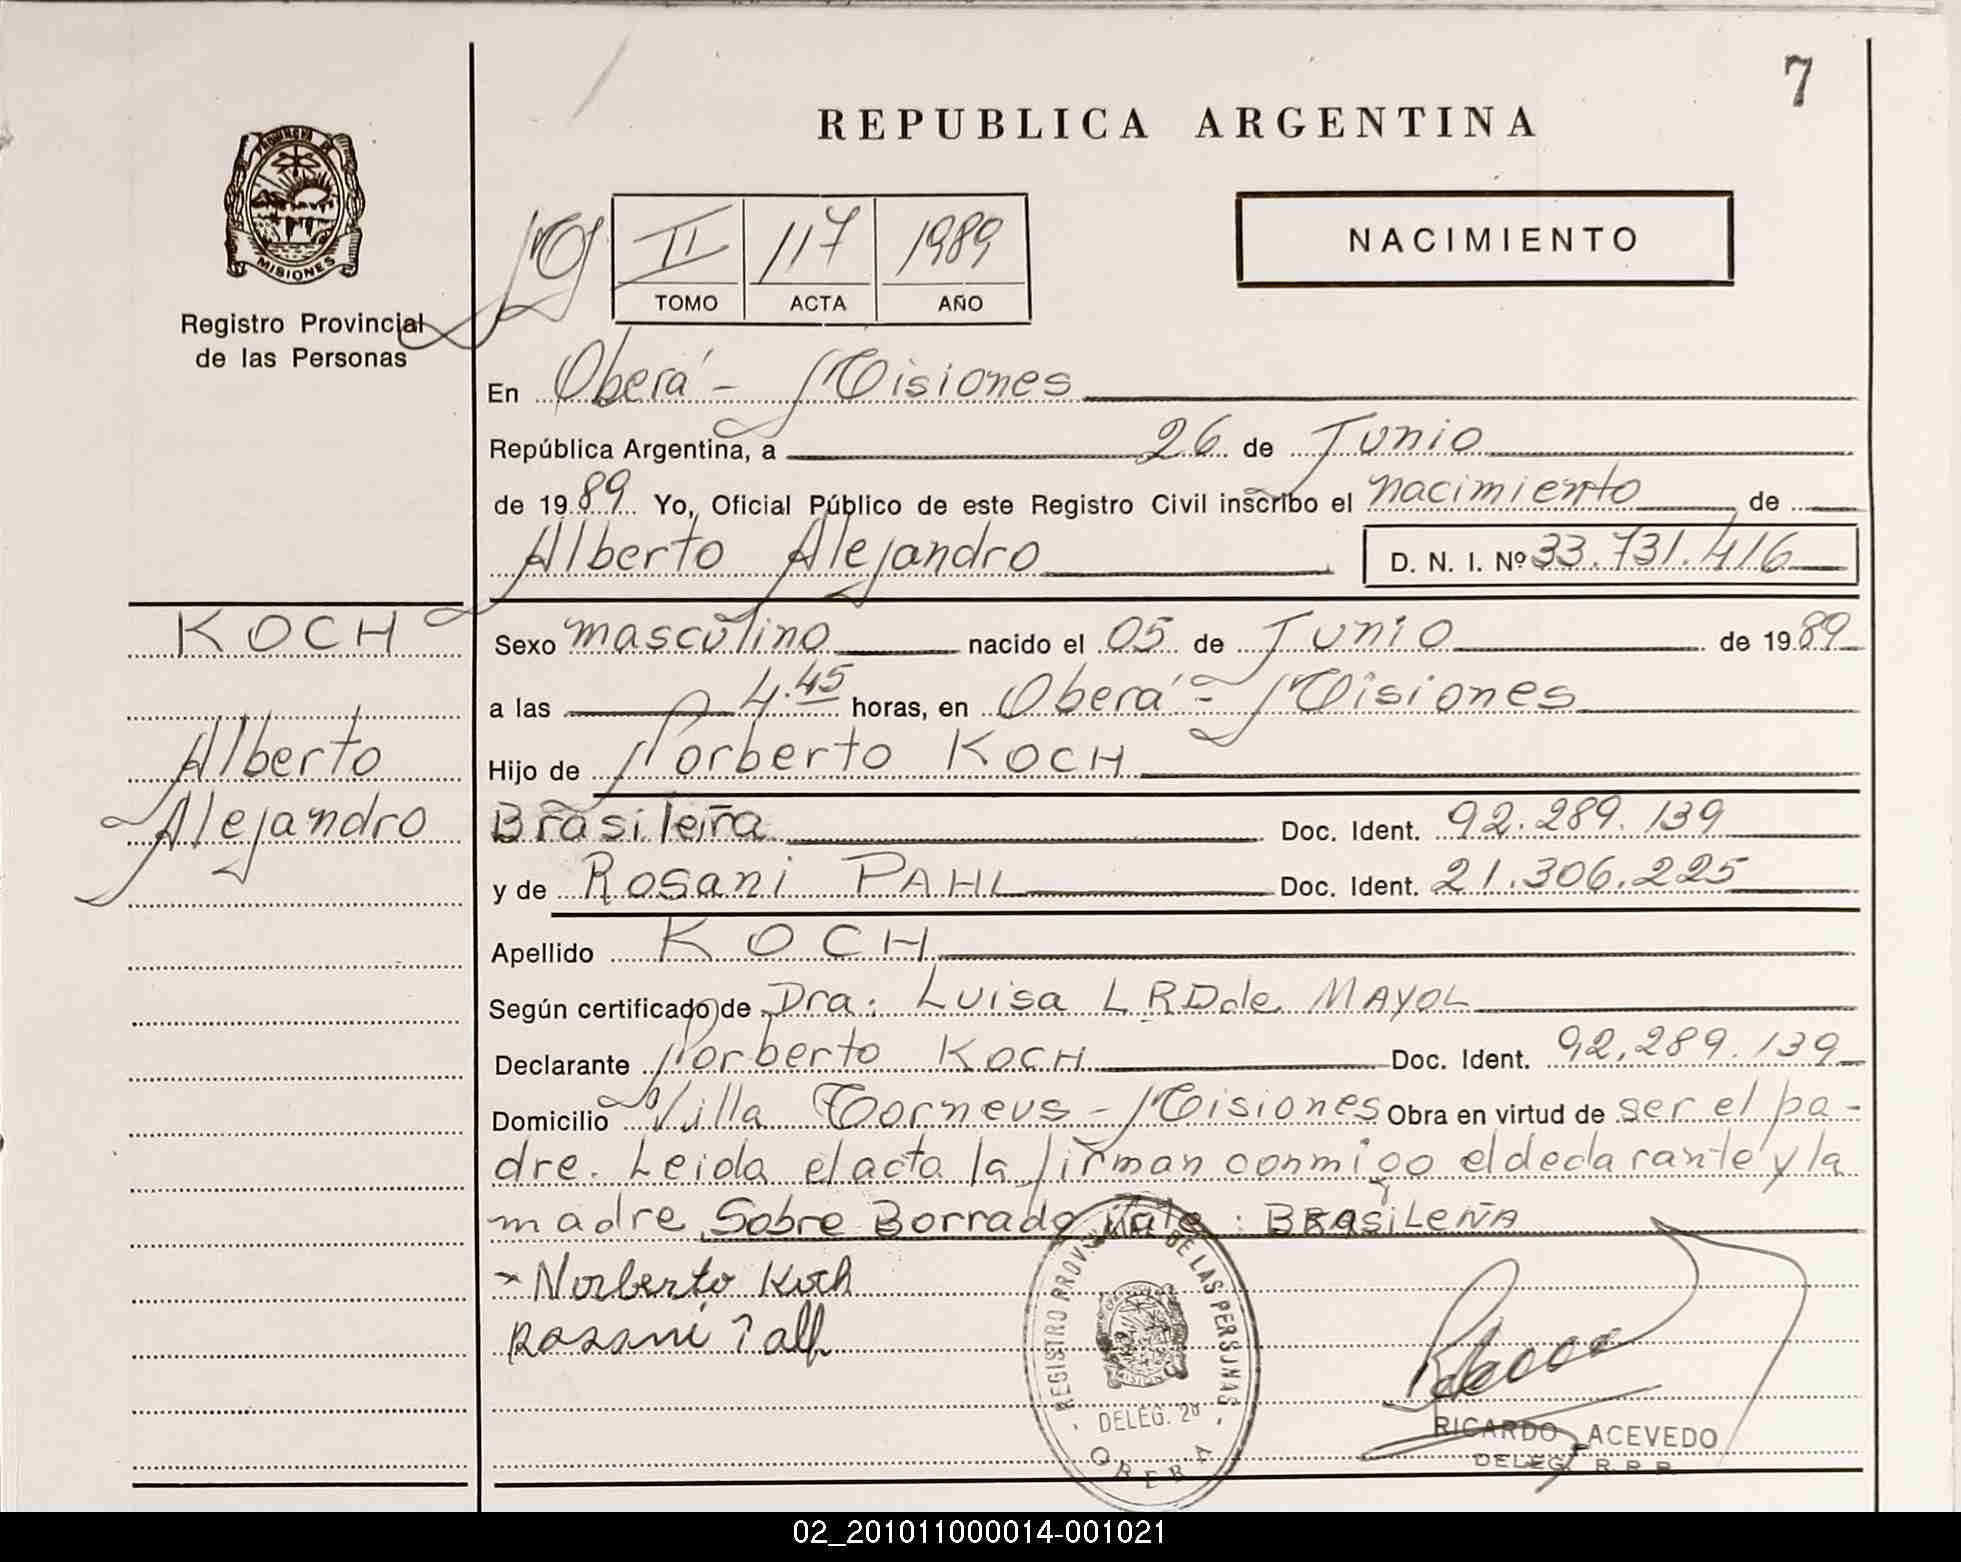 7
REPUBLICA ARGENTINA
PROVINCIA DE
MISIONES
Registro Provincial
de las Personas
II 117 1989
TOMO ACTA AÑO
NACIMIENTO
En Oberá - Misiones
República Argentina, a 26 de Junio
de 1989 Yo, Oficial Público de este Registro Civil inscribo el nacimiento de
Alberto Alejandro D. N. I. Nº 33.731.416
KOCH
Alberto
Alejandro
Sexo masculino nacido el 05 de Junio de 1989
a las 4.45 horas, en Oberá - Misiones
Hijo de Norberto KOCH
Brasileña Doc. Ident. 92.289.139
y de Rosani PAHL Doc. Ident. 21.306.225
Apellido KOCH
Según certificado de Dra: Luisa L R D de MAYOL
Declarante Norberto KOCH Doc. Ident. 92.289.139
Domicilio Villa Torneus - Misiones Obra en virtud de ser el pa-
dre. Leida el acta la firman conmigo el declarante y la
madre Sobre Borrado Vale: BRASiLeÑA
Norberto Koch
Rosani Palh
REGISTRO PROVINCIAL DE LAS PERSONAS
DELEG. 2ª
OBERA
RICARDO ACEVEDO
DELEG. R. P. P.
02_201011000014-001021